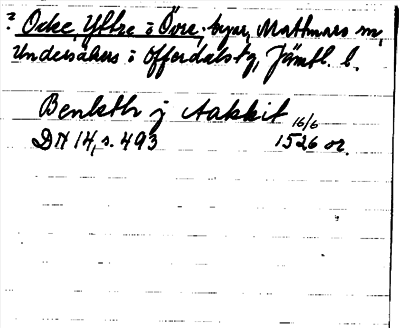 ? Ocke, Yttre o Övre, byar, Mattmars sn,
Undersåkers o Offerdals tg, Jämtl. l.
Benkth j Aakkit
16/6
DN 14, s. 493 1526 or.